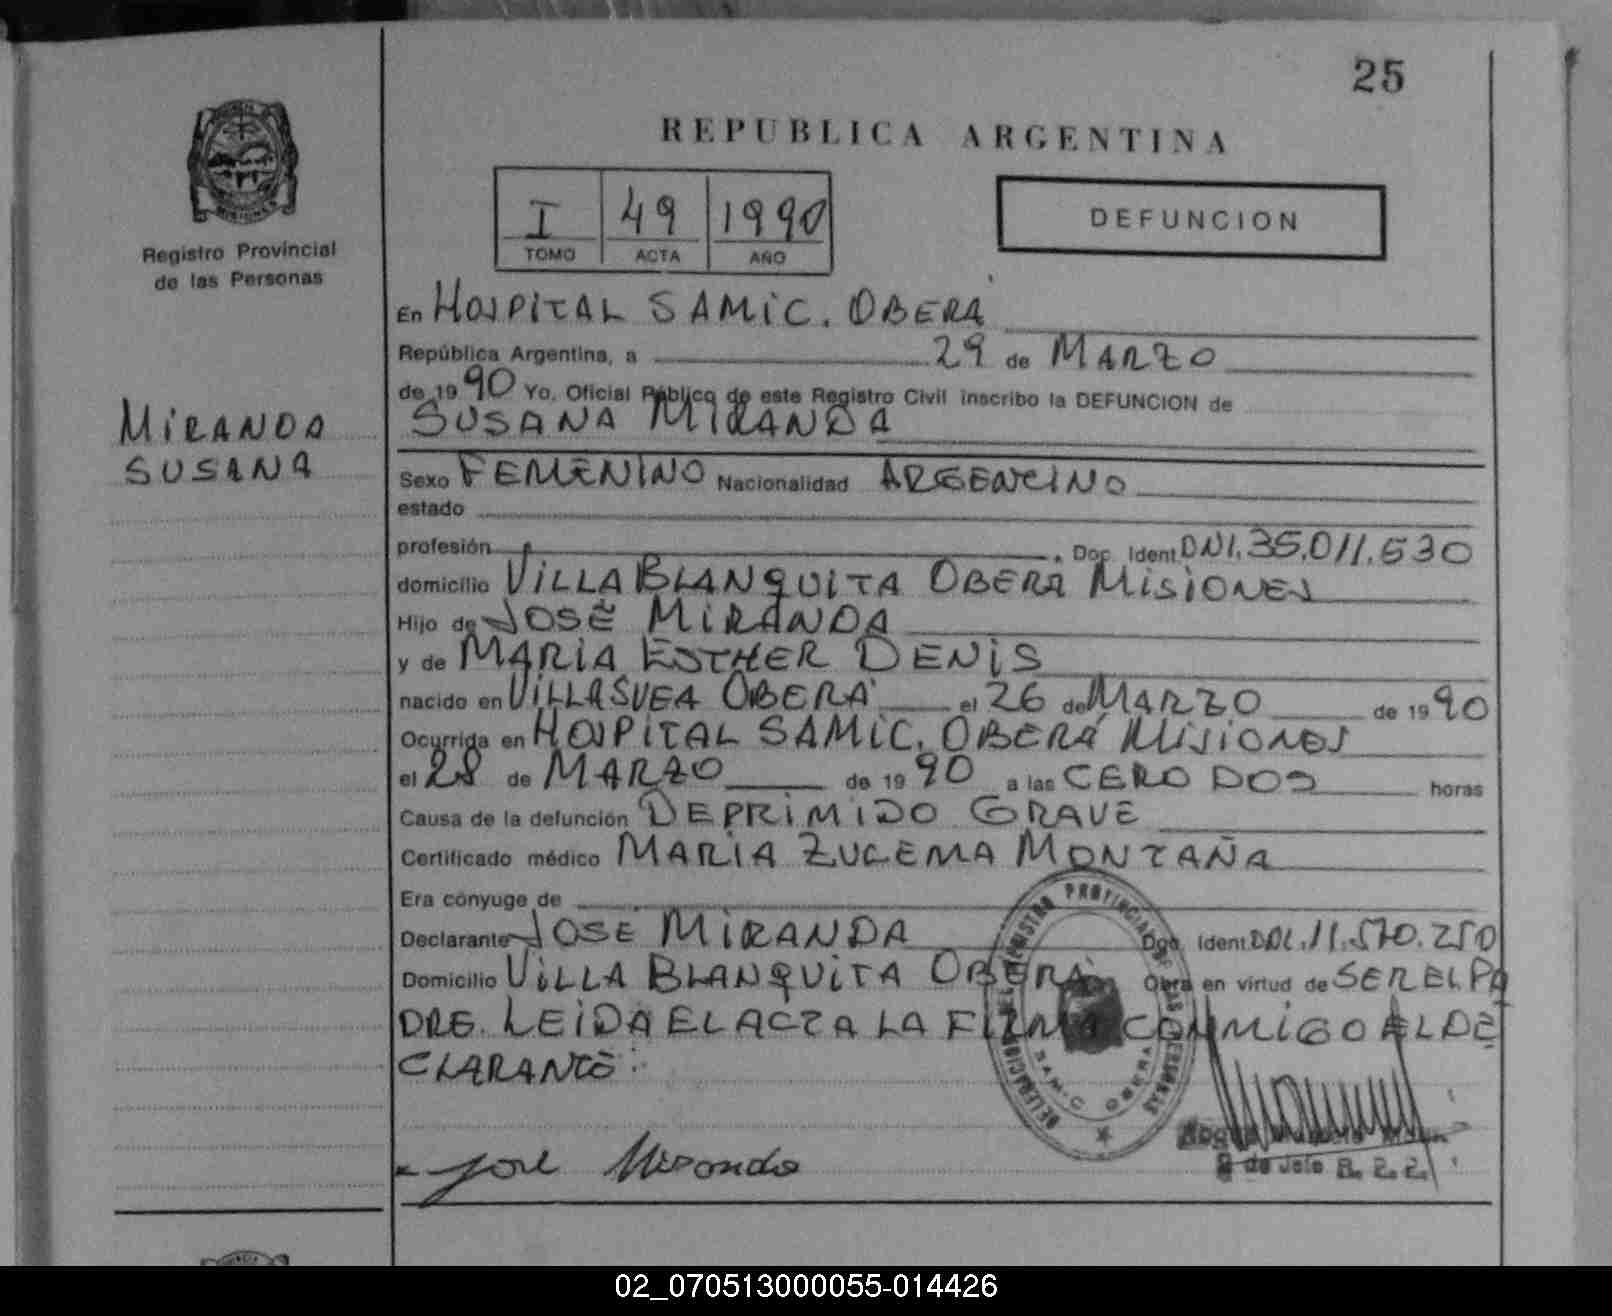 25
REPUBLICA ARGENTINA
I 49 1990
TOMO ACTA AÑO
DEFUNCION
MISIONES
Registro Provincial
de las Personas
MIRANDA
SUSANA
En HOSPITAL SAMIC. OBERÁ
República Argentina, a 29 de MARZO
de 1990 Yo, Oficial Público de este Registro Civil inscribo la DEFUNCION de
SUSANA MIRANDA
Sexo FEMENINO Nacionalidad ARGENTINO
estado
profesión Doc. Ident. DNI. 35.011.530
domicilio VILLA BLANQUITA OBERA MISIONES
Hijo de JOSÉ MIRANDA
y de MARIA ESTHER DENIS
nacido en VILLA SVEA OBERÁ el 26 de MARZO de 1990
Ocurrida en HOSPITAL SAMIC. OBERÁ MISIONES
el 28 de MARZO de 1990 a las CERO DOS horas
Causa de la defunción DEPRIMIDO GRAVE
Certificado médico MARIA ZULEMA MONTAÑA
Era cónyuge de
Declarante JOSÉ MIRANDA Doc. Ident. DNI. 11.570.250
Domicilio VILLA BLANQUITA OBERÁ Obra en virtud de SER EL PA
DRE. LEIDA EL ACTA LA FIRMA CONMIGO EL DE
CLARANTE.
REGISTRO PROVINCIAL DE LAS PERSONAS
SAMIC OBERA
José Miranda
de Jefe R. P. P.
02_070513000055-014426